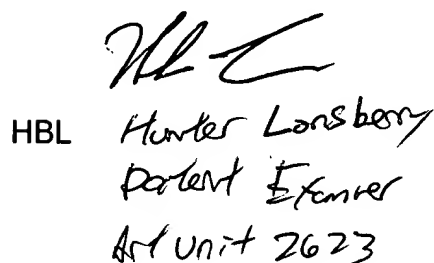 HBL Hunter Lonsberry
Patent Examiner
Art Unit 2623